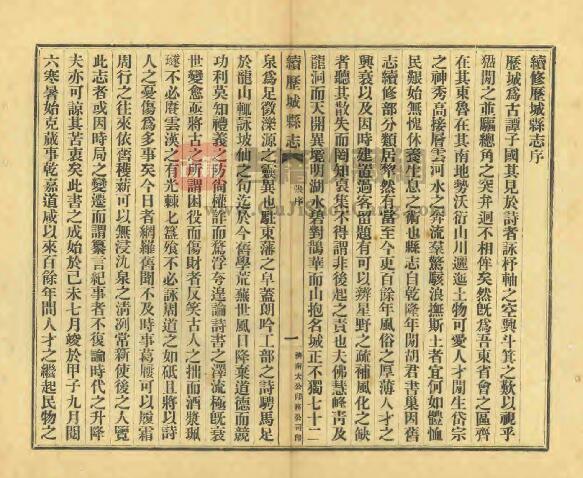 續修歷城縣志序
歷城為古譚子國其見於詩者詠杼軸之空興斗箕之歎以視乎
猺閒之並驅總角之突弁迥不相侔矣然既為吾東省會之區齊
在其東魯在其南地勢沃衍山川邐迤土物可愛人才閒生岱宗
之神秀高接層雲河水之奔流羣驚駭浪撫斯土者宜何如體恤
民艱始無愧休養生息之術也縣志自乾隆年間胡君書巢因舊
志續修部分類居犂然有當至今更百餘年風俗之厚薄人才之
興衰以及因時建置過客留題有可以辨星野之疏補風化之缺
者聽其散失而罔知裒集不得謂非後起之責也夫佛慧峰青及
龍洞而天開異境明湖水碧對鵲華而山抱名城正不獨七十二
續歷城縣志
序
一
濟南大公印務公司印
泉為足徵濼源之靈異也駐東藩之皁蓋朗吟工部之詩騁馬足
於龍山輒詠坡仙之句迄於今舊學荒蕪世風日降棄道德而競
功利莫知禮義之防尚權詐而騖浮夸遑論詩書之澤流極既衰
世變愈亟將古之所謂困役而傷財者反笑古人之拙而酒漿珮
璲不必賡雲漢之有光棘匕簋飧不必詠周道之如砥且將以詩
人之憂傷為多事矣今日者網羅舊聞不及時事葛屨可以履霜
周行之往來依舊穫薪可以無浸氿泉之清洌常新使後之人覽
此志者或因時局之變遷而謂纂言紀事者不復論時代之升降
夫亦可諒其苦衷矣此書之成始於己未七月竣於甲子九月閱
六寒暑始克蕆事乾嘉道咸以來百餘年間人才之繼起民物之